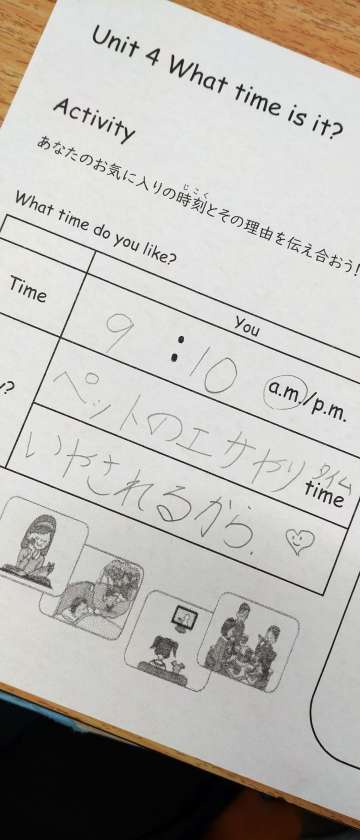 Unit 4 What time is it?
Activity
あなたのお気に入りの時刻とその理由を伝え合おう!
じこく
What time do you like?
You
Time
9:10 a.m./p.m.
y?
ペットのエサやりタイム
time
いやされるから.